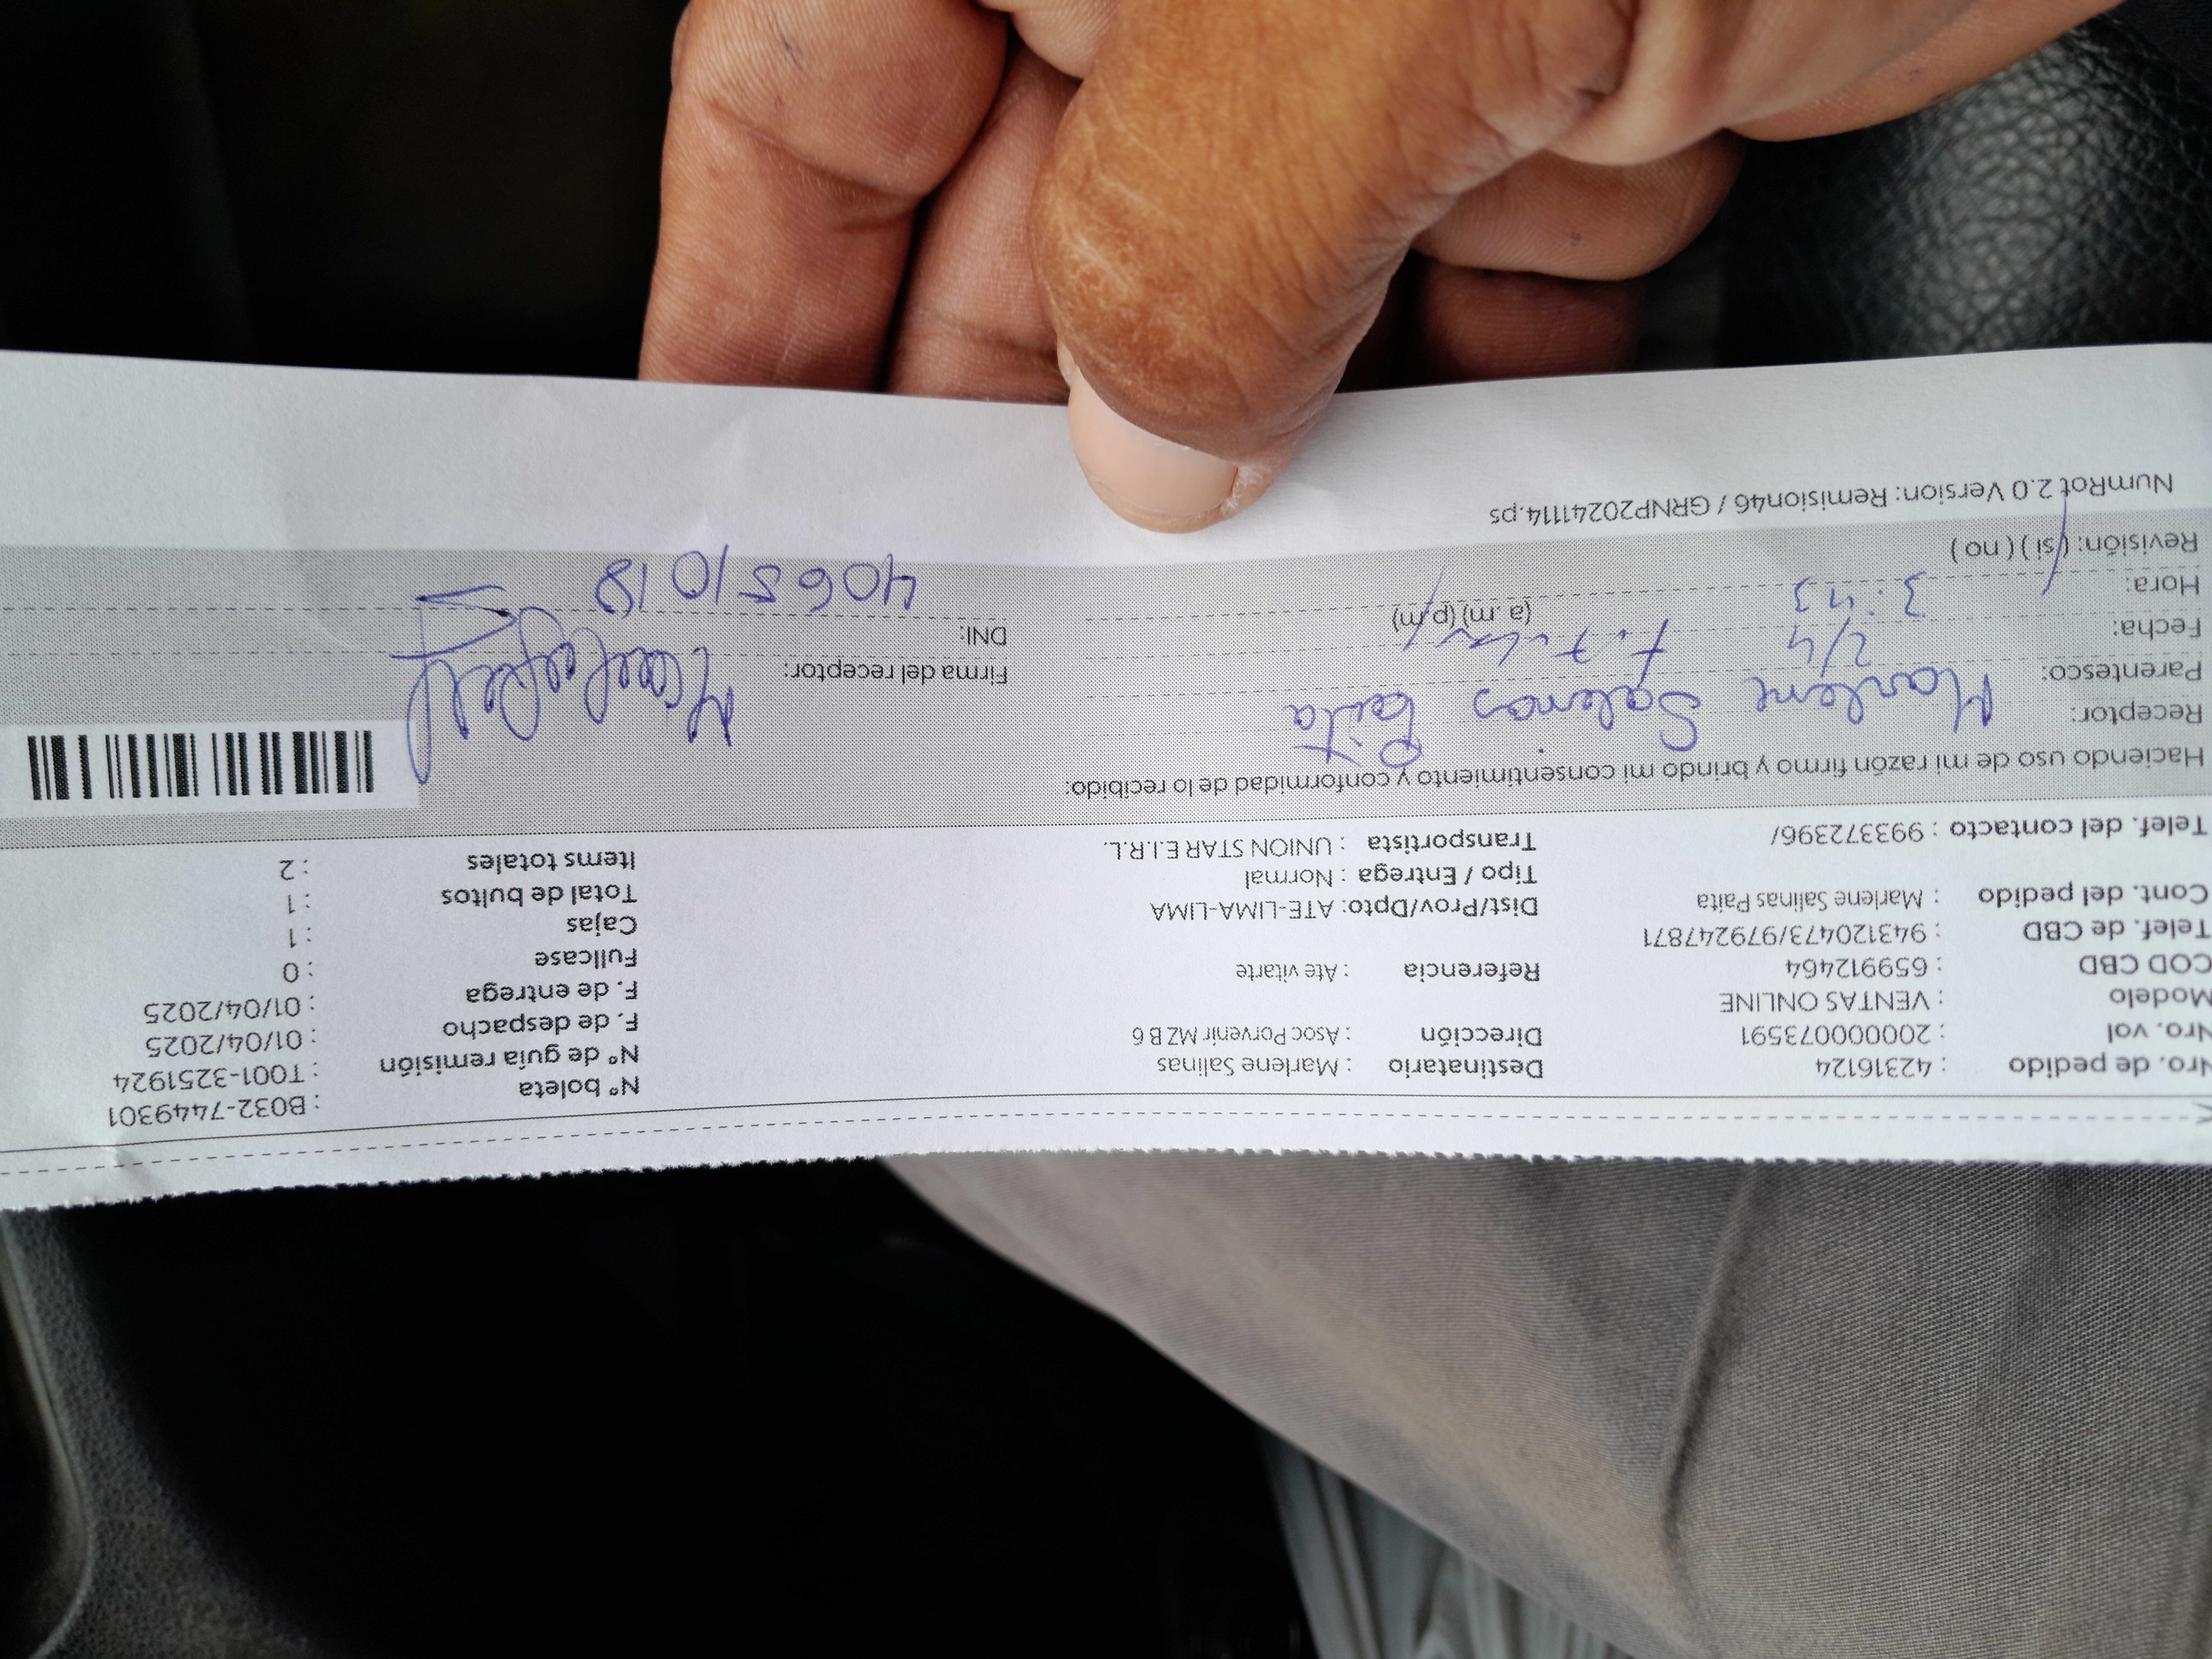 Nro. de pedido : 42316124 Destinatario : Marlene Salinas Nº boleta : B032-7449301
Nro. vol : 20000073591 Dirección : Asoc Porvenir MZ B 6 Nº de guía remisión : T001-3251924
Modelo : VENTAS ONLINE F. de despacho : 01/04/2025
COD CBD : 659912464 Referencia : Ate vitarte F. de entrega : 01/04/2025
Telef. de CBD : 943120473/979247871 Fullcase : 0
Cont. del pedido : Marlene Salinas Paita Dist/Prov/Dpto: ATE-LIMA-LIMA Cajas : 1
Tipo / Entrega : Normal Total de bultos : 1
Telef. del contacto : 993372396/ Transportista : UNION STAR E.I.R.L. Items totales : 2
Haciendo uso de mi razón firmo y brindo mi consentimiento y conformidad de lo recibido:
Receptor: Marlene Salinas Paita
Parentesco: Firma del receptor:
Fecha: 2/4
Hora: 3:43 (a.m) (p.m) DNI: 40651018
Revisión: (si) (no)
NumRot 2.0 Version: Remision46 / GRNP20241114.ps